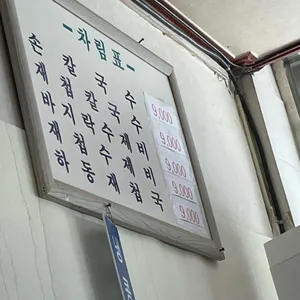 -차림표-
손 칼 국 수 9,000
재 첩 칼 국 수 9,000
바 지 락 수 제 비 9,000
재 첩 수 제 비 9,000
하 동 재 첩 국 9,000